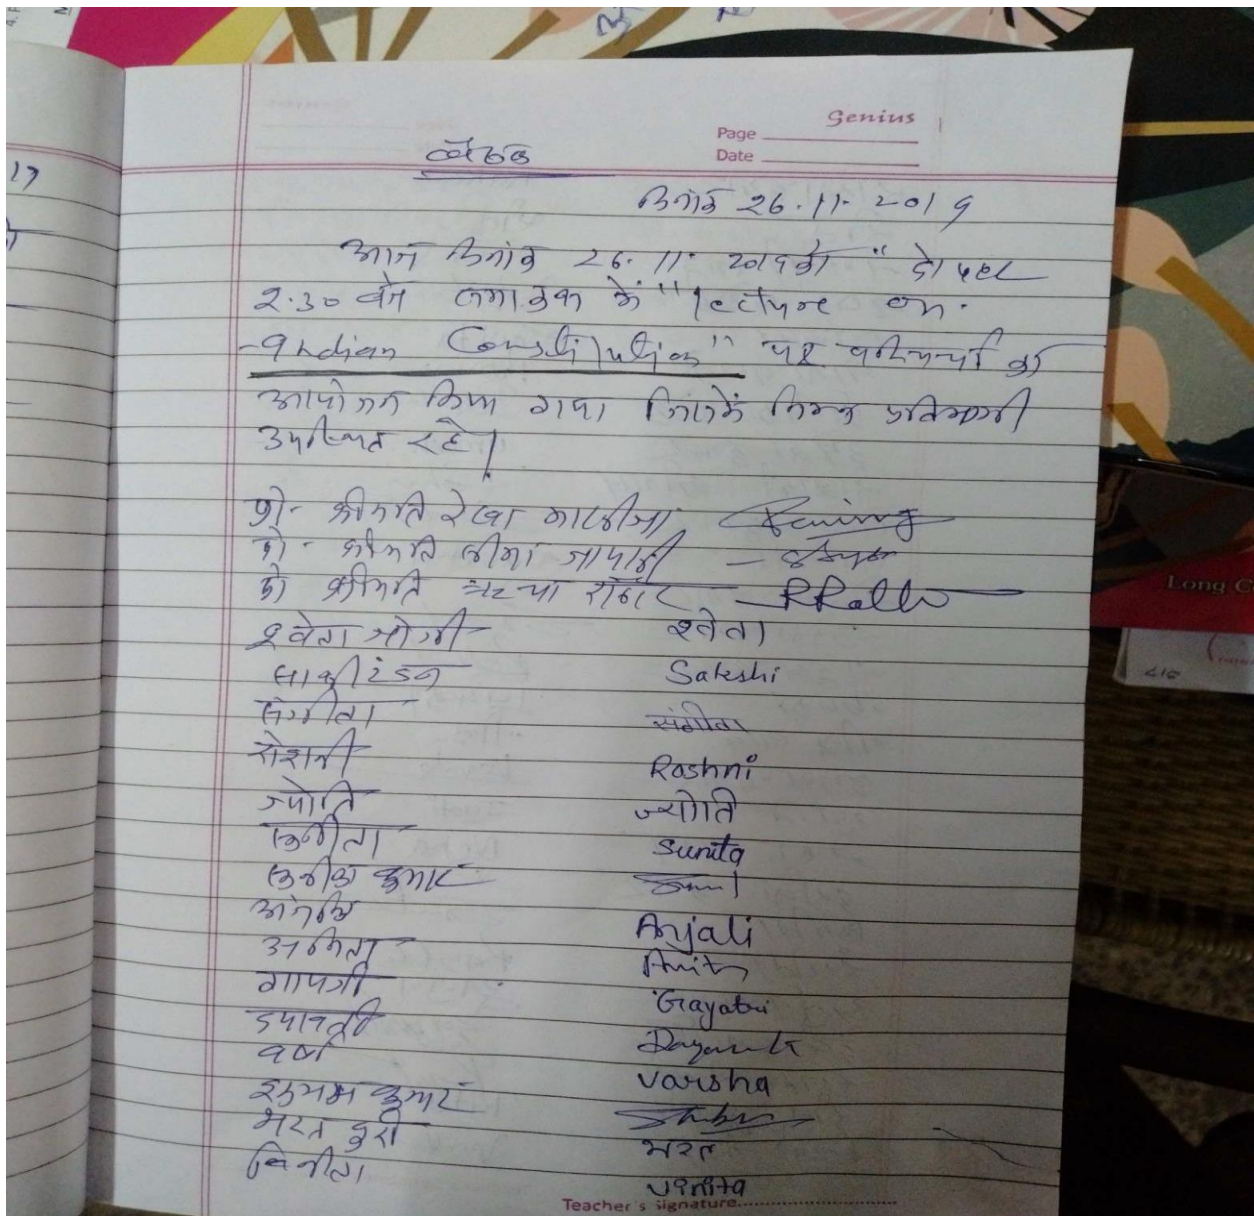 Genius
Page
Date
बैठक
दिनांक 26.11.2019
आज दिनांक 26.11.2019 को " दोपहर
2.30 बजे सभाकक्ष में "lecture on.
Indian Constitution" पर परिचर्चा का
आयोजन किया गया जिसमें निम्न प्रतिभागी
उपस्थित रहे।
प्रो- श्रीमति रेखा
प्रो- श्रीमति
प्रो श्रीमति
श्वेता जोशी श्वेता
साक्षी टंडन Sakshi
संगीता संगीता
रोशनी Roshni
ज्योति ज्योति
सुनीता Sunita
सुनील कुमार Sunil
अंजलि Anjali
अनिता Anita
गायत्री Gayatri
दयावती
वर्षा Varsha
शुभम कुमार
भरत भरत
विनीता Vinita
Teacher's signature
Long C